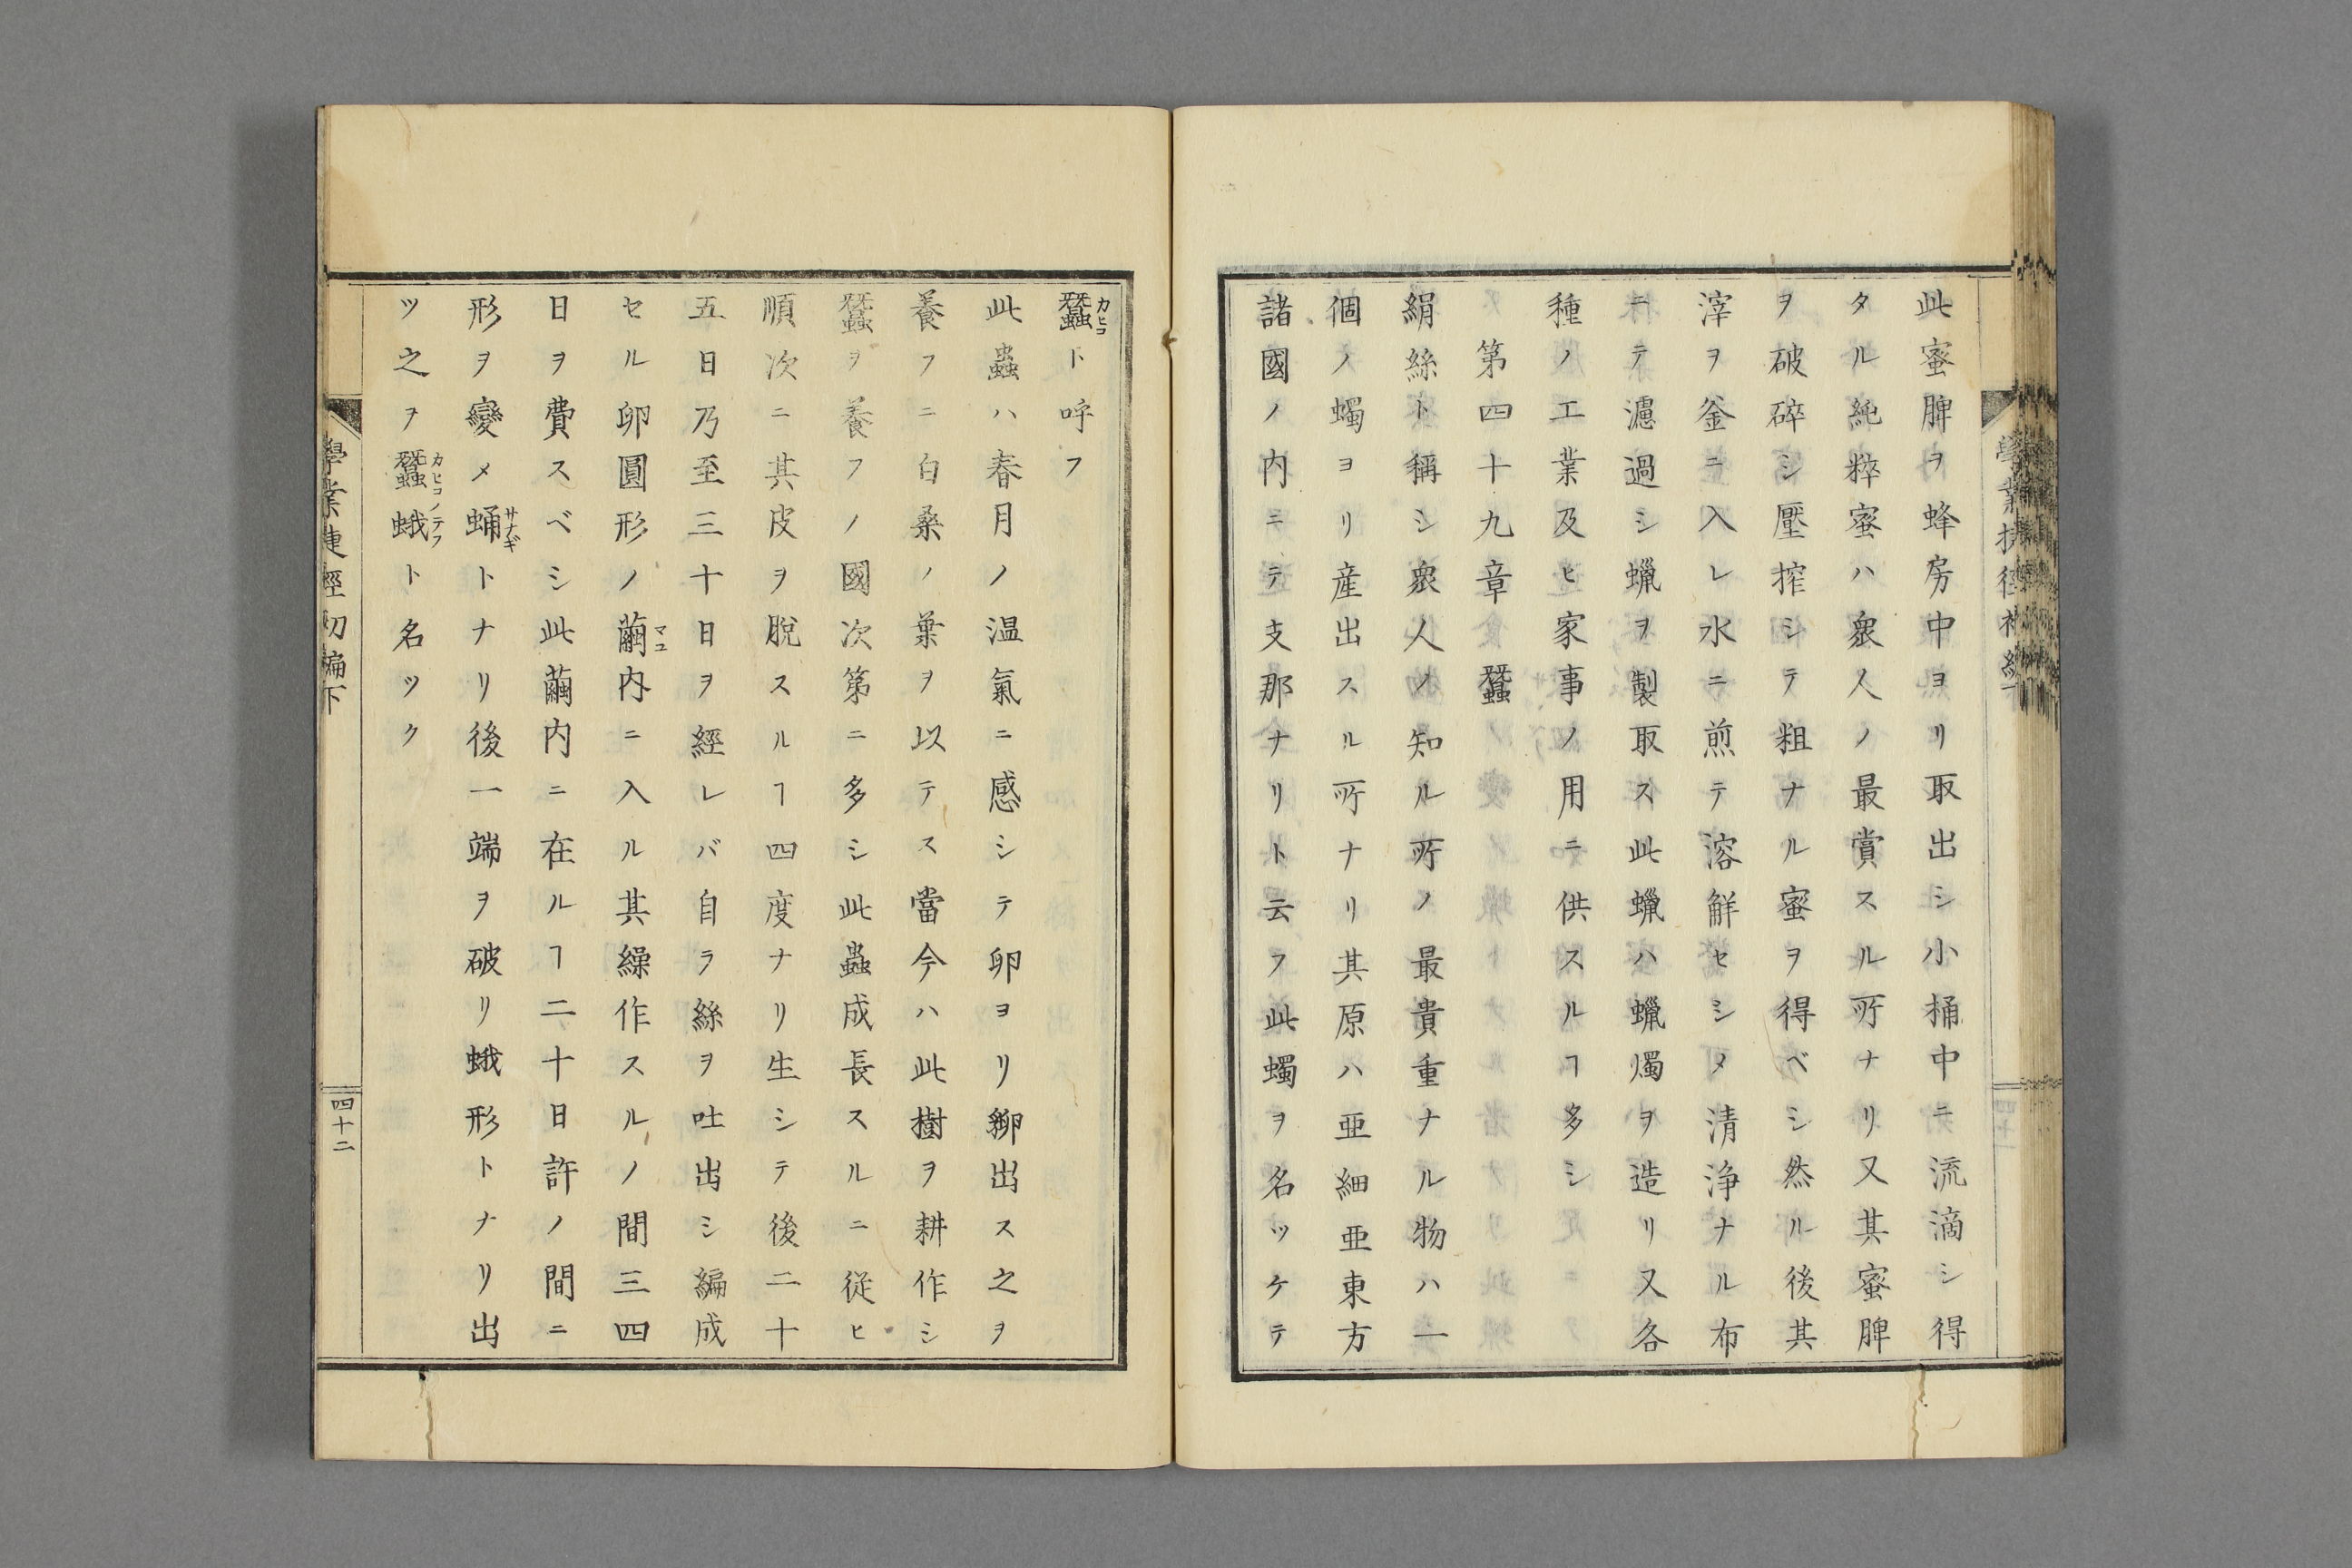 此蜜脾ヲ蜂房中ヨリ取出シ小桶中ニ流滴シ得
タル純粹蜜ハ衆人ノ最賞スル所ナリ又其蜜脾
ヲ破碎シ壓搾シテ粗ナル蜜ヲ得ベシ然ル後其
滓ヲ釜ニ入レ水ニ煎テ溶解セシメ清浄ナル布
ニテ濾過シ蠟ヲ製取ス此蠟ハ蠟燭ヲ造リ又各
種ノ工業及ヒ家事ノ用ニ供スルヿ多シ
第四十九章 蠶
絹絲ト稱シ衆人ノ知ル所ノ最貴重ナル物ハ一
個ノ蠋ヨリ産出スル所ナリ其原ハ亜細亜東方
諸國ノ内ニテ支那ナリト云フ此蠋ヲ名ツケテ
蠶カヒコト呼フ
此蟲ハ春月ノ温氣ニ感シテ卵ヨリ孵出ス之ヲ
養フニ白桑ノ葉ヲ以テス當今ハ此樹ヲ耕作シ
蠶ヲ養フノ國次第ニ多シ此蟲成長スルニ従ヒ
順次ニ其皮ヲ脱スルヿ四度ナリ生シテ後二十
五日乃至三十日ヲ經レバ自ラ絲ヲ吐出シ編成
セル卵圓形ノ繭マユ内ニ入ル其繰作スルノ間三四
日ヲ費スベシ此繭内ニ在ルヿ二十日許ノ間ニ
形ヲ變メ蛹サナギトナリ後一端ヲ破リ蛾形トナリ出
ツ之ヲ蠶蛾カヒコノテフト名ツク
學業捷徑初編下
四十二